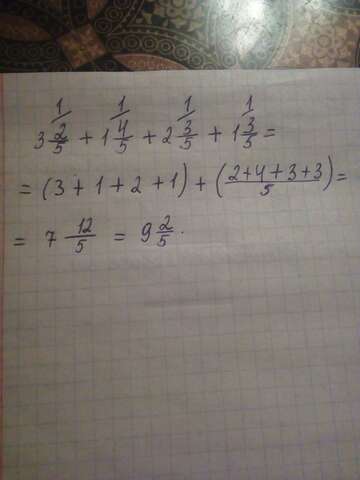 1 1 1 1
3 2/5 + 1 4/5 + 2 3/5 + 1 3/5 =
= (3 + 1 + 2 + 1) + (2+4+3+3/5) =
= 7 12/5 = 9 2/5.